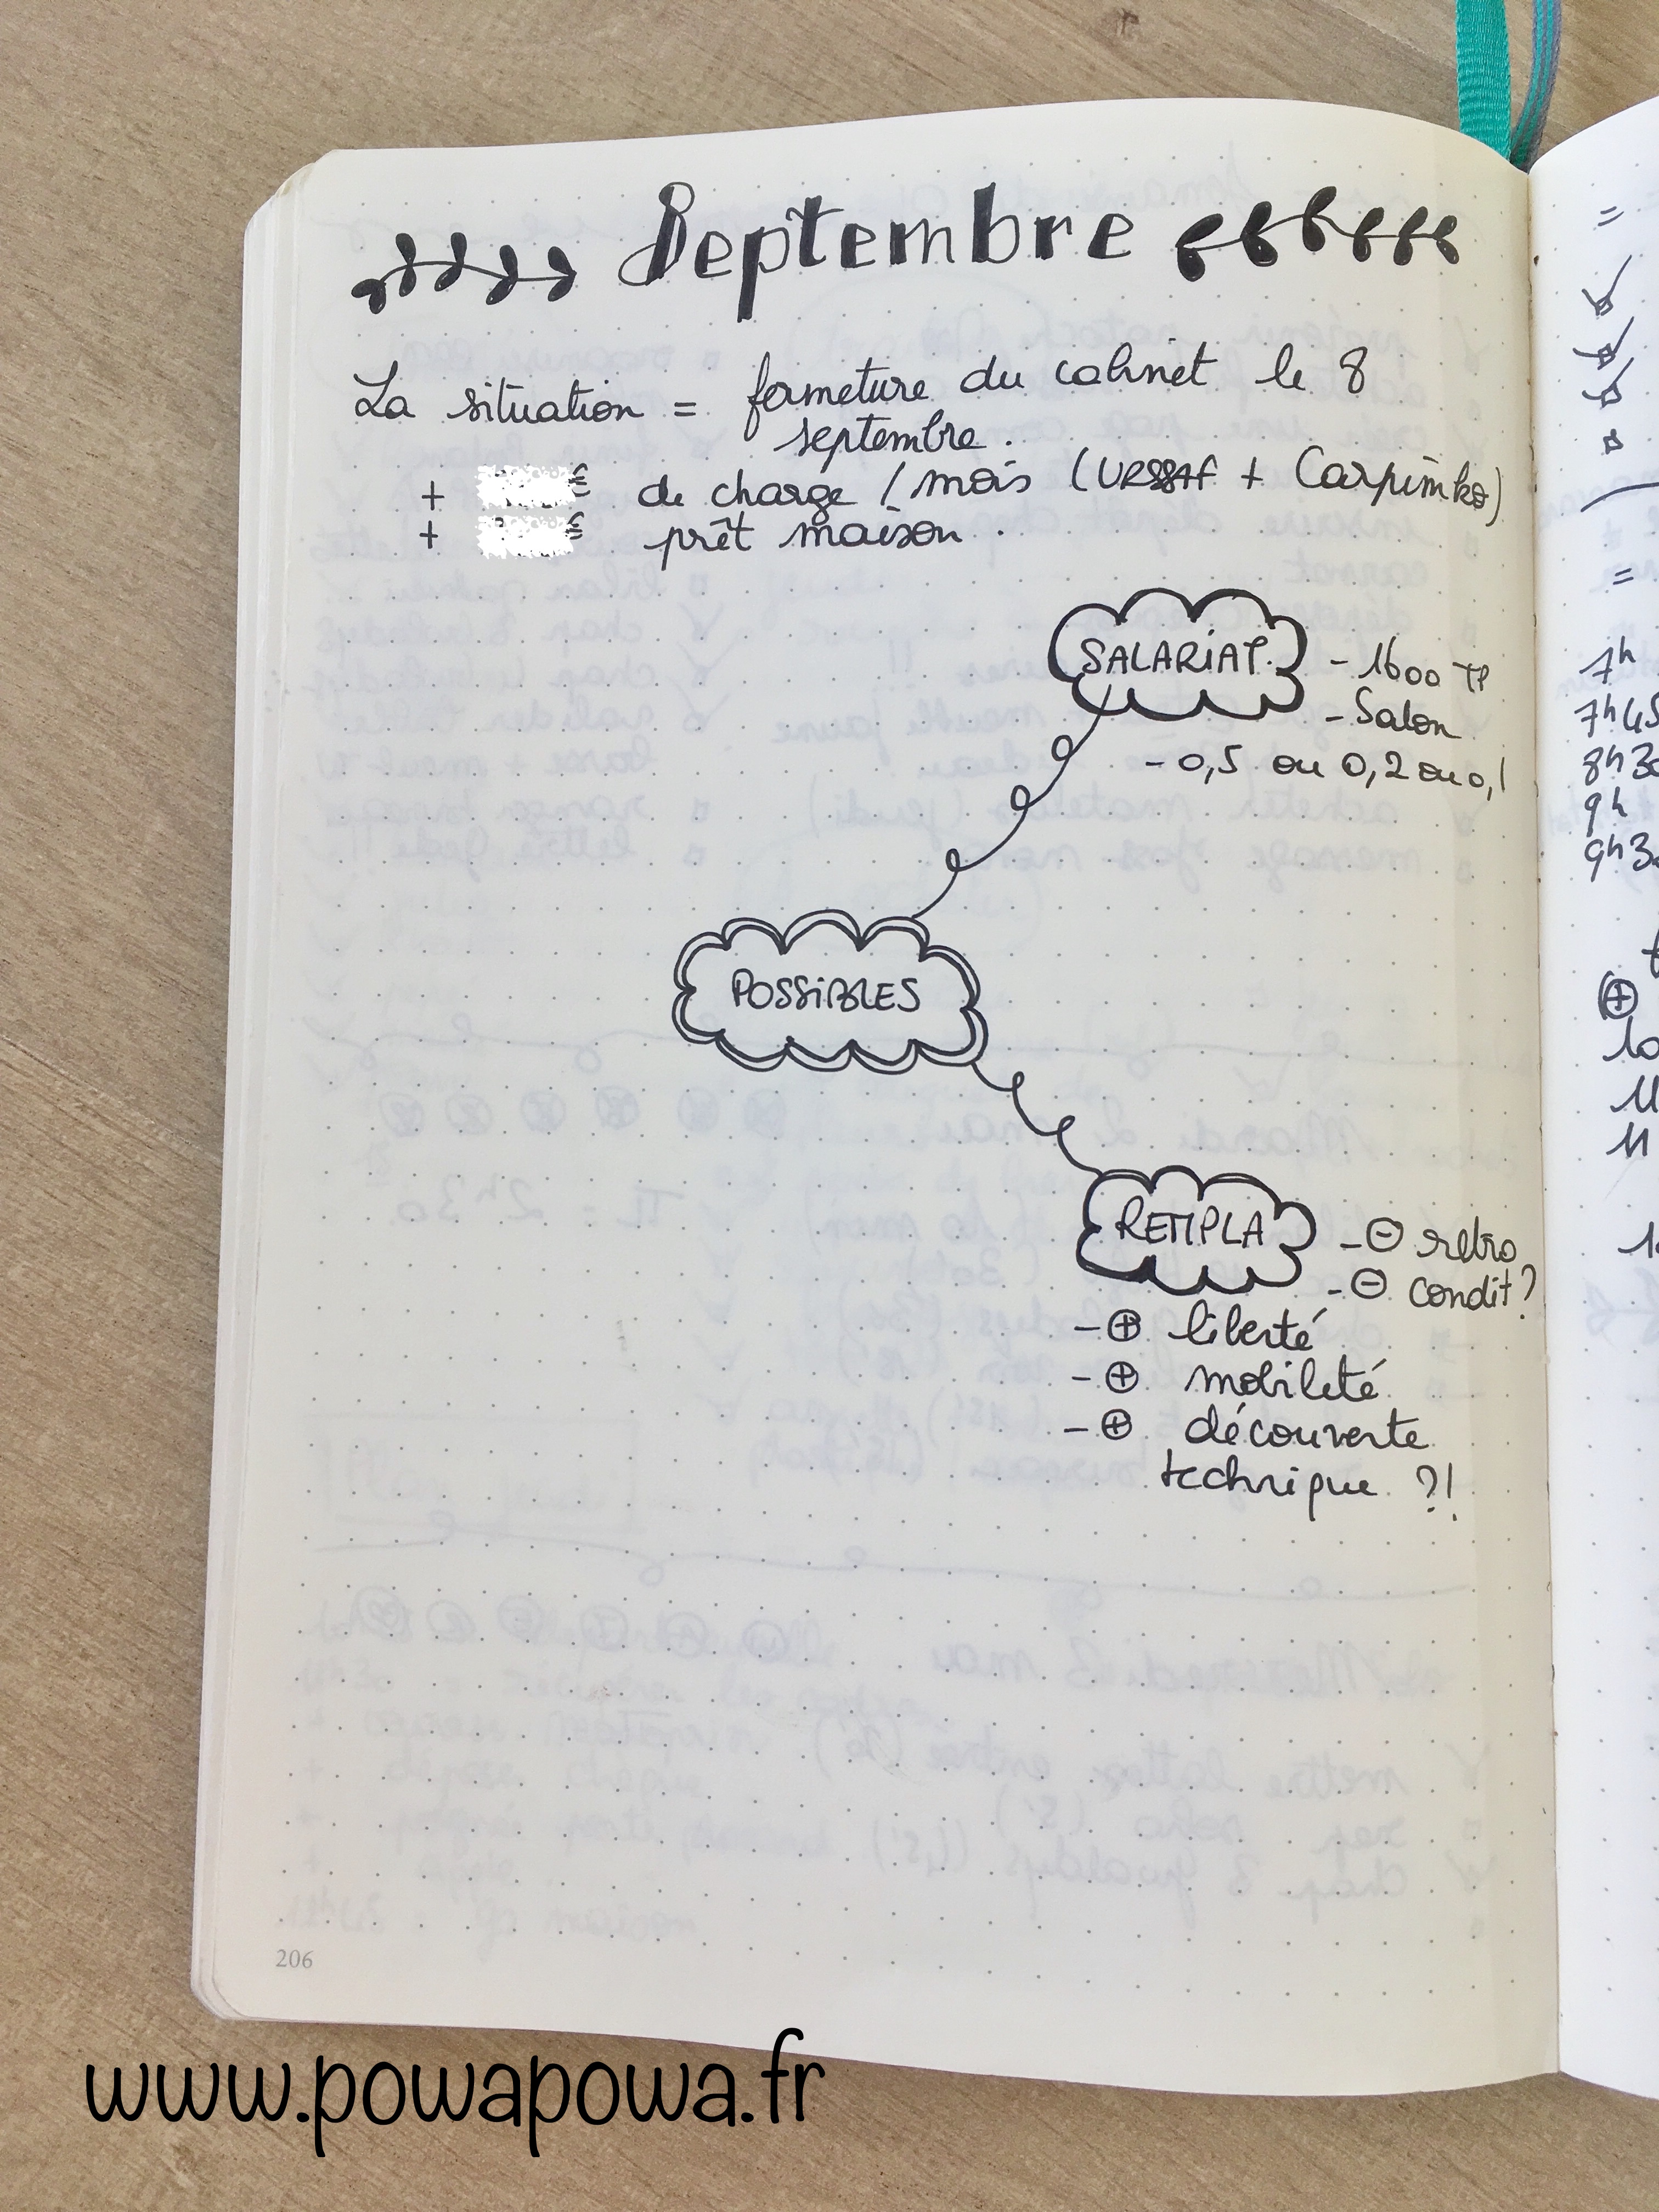 Septembre
La situation = fermeture du cabinet le 8
septembre.
+ € de charge / mois (URSSAF + Carpimko)
+ € prêt maison.
SALARIAT
- 1600 TP
- Salon
- 0,5 ou 0,2 ou 0,1
POSSIBLES
REMPLA
- ⊖ retro
- ⊖ condit?
- ⊕ liberté
- ⊕ mobilité
- ⊕ découverte
technique ?!
206
=
=
7h
7h45
8h30
9h
9h3
⊕
www.powapowa.fr